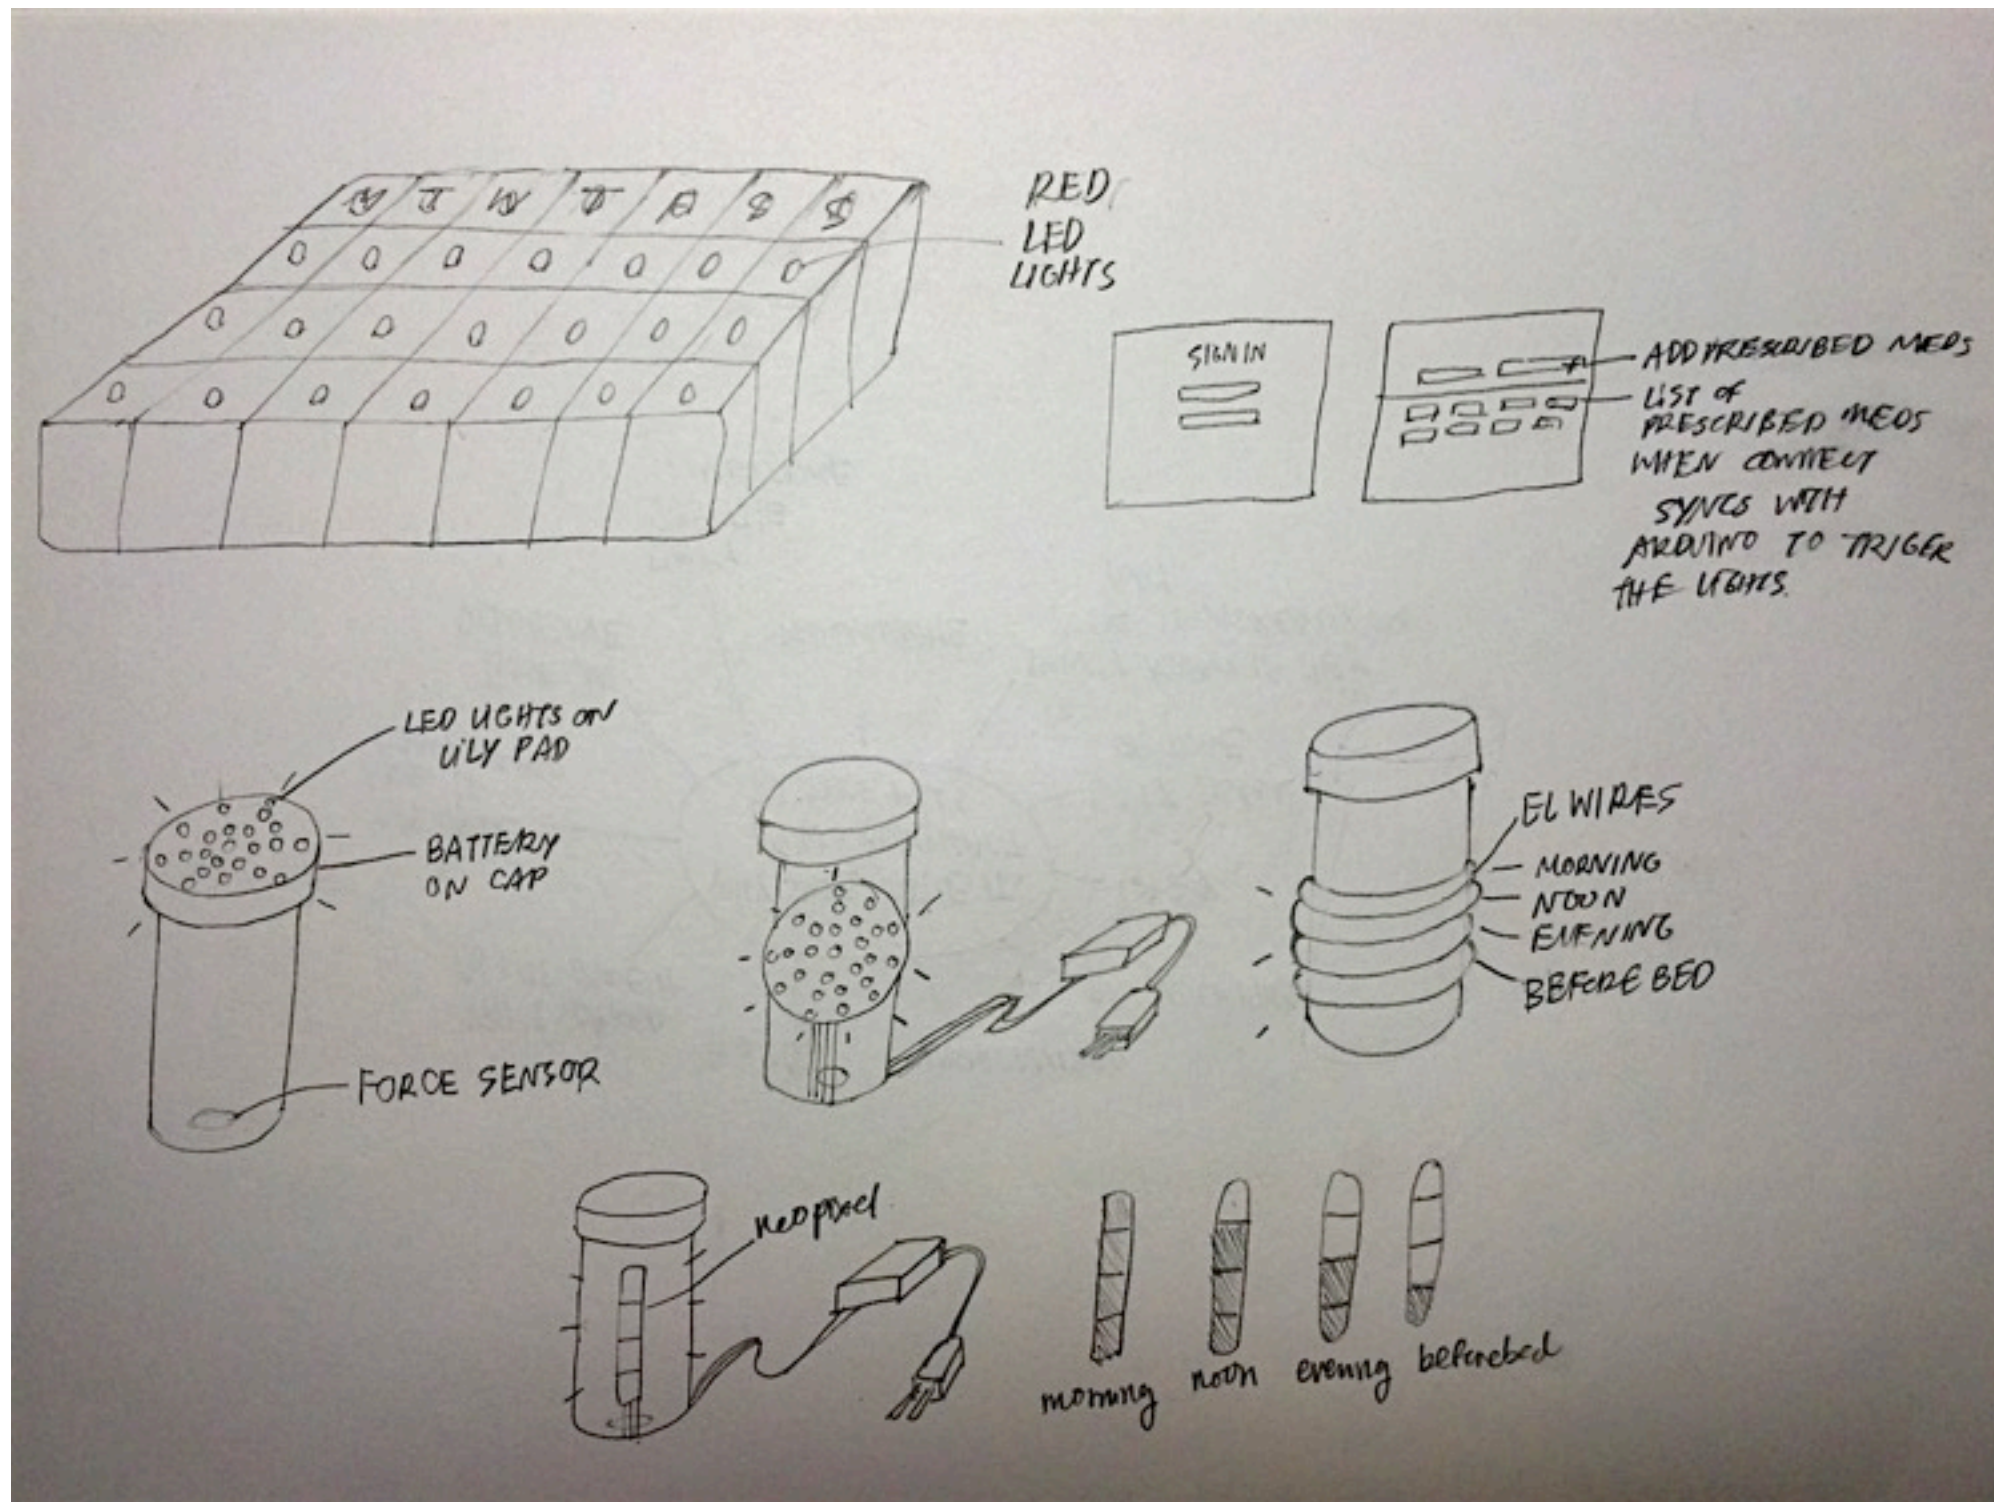 M T W T F S S
RED
LED
LIGHTS
SIGN IN
ADD PRESCRIBED MEDS
LIST OF
PRESCRIBED MEDS
WHEN CONNECT
SYNCS WITH
ARDUINO TO TRIGER
THE LIGHTS.
LED LIGHTS ON
LILY PAD
BATTERY
ON CAP
FORCE SENSOR
EL WIRES
MORNING
NOON
EVENING
BEFORE BED
neopixel
morning
noon
evening
beforebed